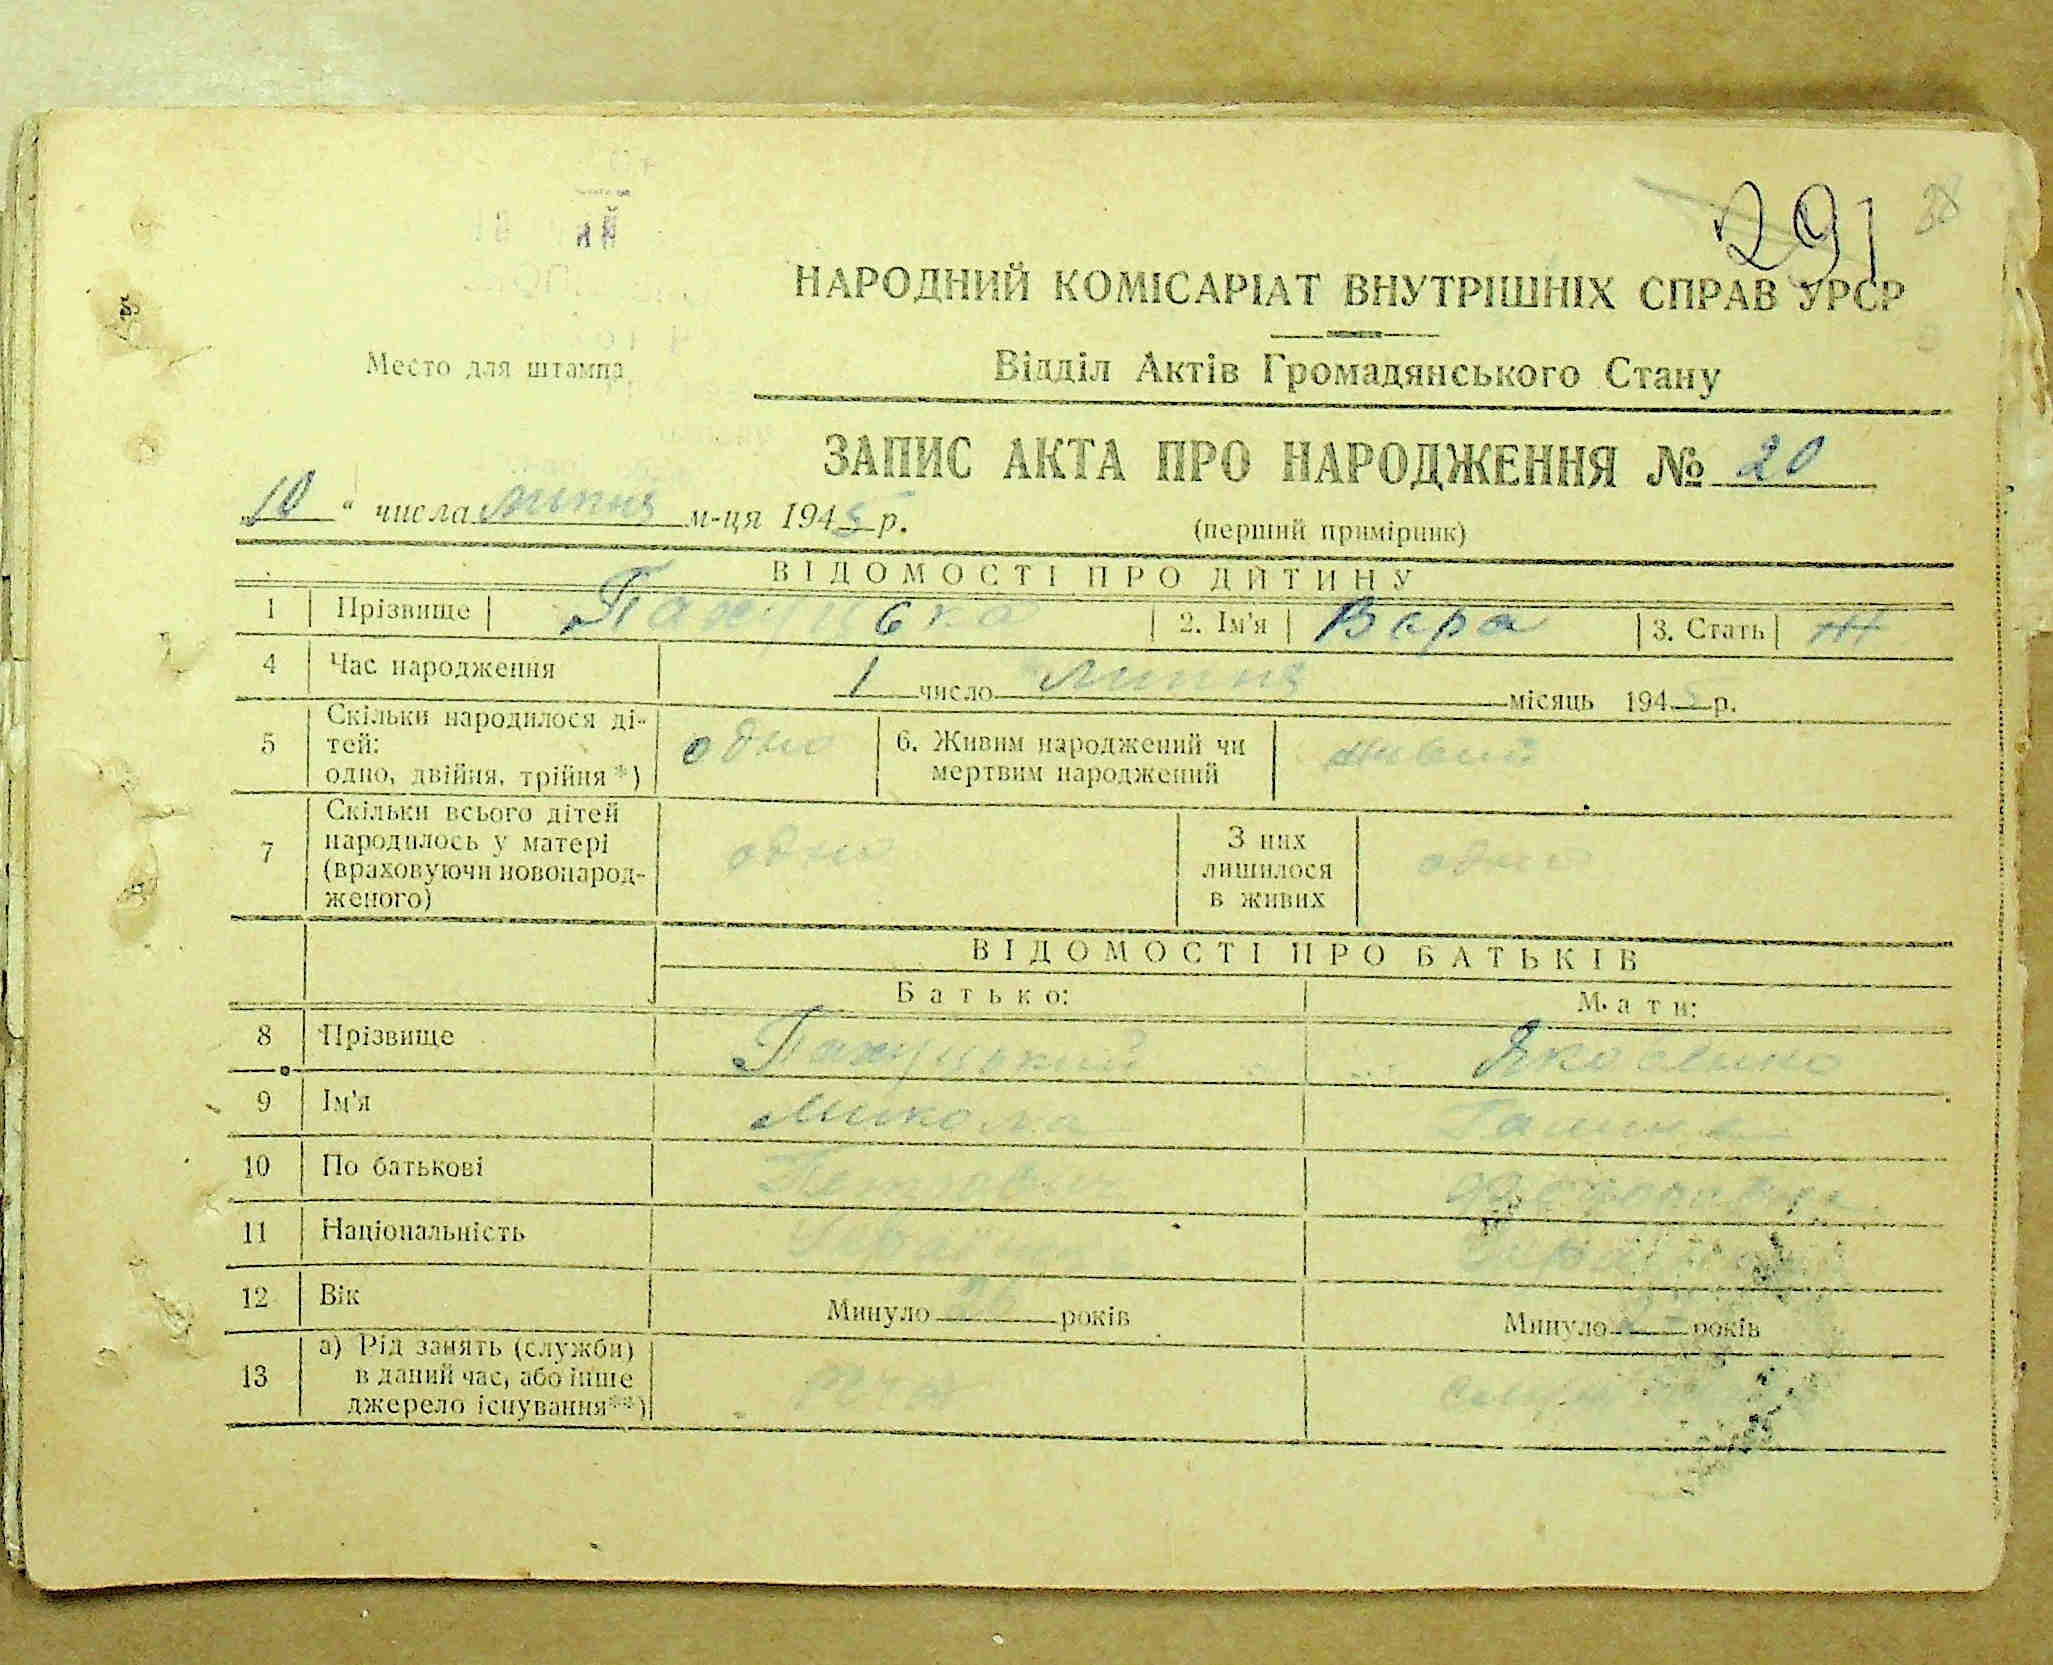 291 38
НАРОДНИЙ КОМІСАРІАТ ВНУТРІШНІХ СПРАВ УРСР
Место для штампа
Відділ Актів Громадянського Стану
ЗАПИС АКТА ПРО НАРОДЖЕННЯ № 20
„10“ числа липня м-ця 1945 р.
(перший примірник)
ВІДОМОСТІ ПРО ДИТИНУ
1 Прізвище 2. Ім'я Вера 3. Стать Ж
4 Час народження 1 число липня місяць 1945 р.
5 Скільки народилося ді-
тей:
одно, двійня, трійня*) одно 6. Живим народжений чи
мертвим народжений живий
7 Скільки всього дітей
народилось у матері
(враховуючи новонарод-
женого) одно З них
лишилося
в живих одно
ВІДОМОСТІ ПРО БАТЬКІВ
Батько: Мати:
8 Прізвище
9 Ім'я Микола Галина
10 По батькові Петрович
11 Національність
12 Вік Минуло років Минуло років
13 а) Рід занять (служби)
в даний час, або інше
джерело існування**)